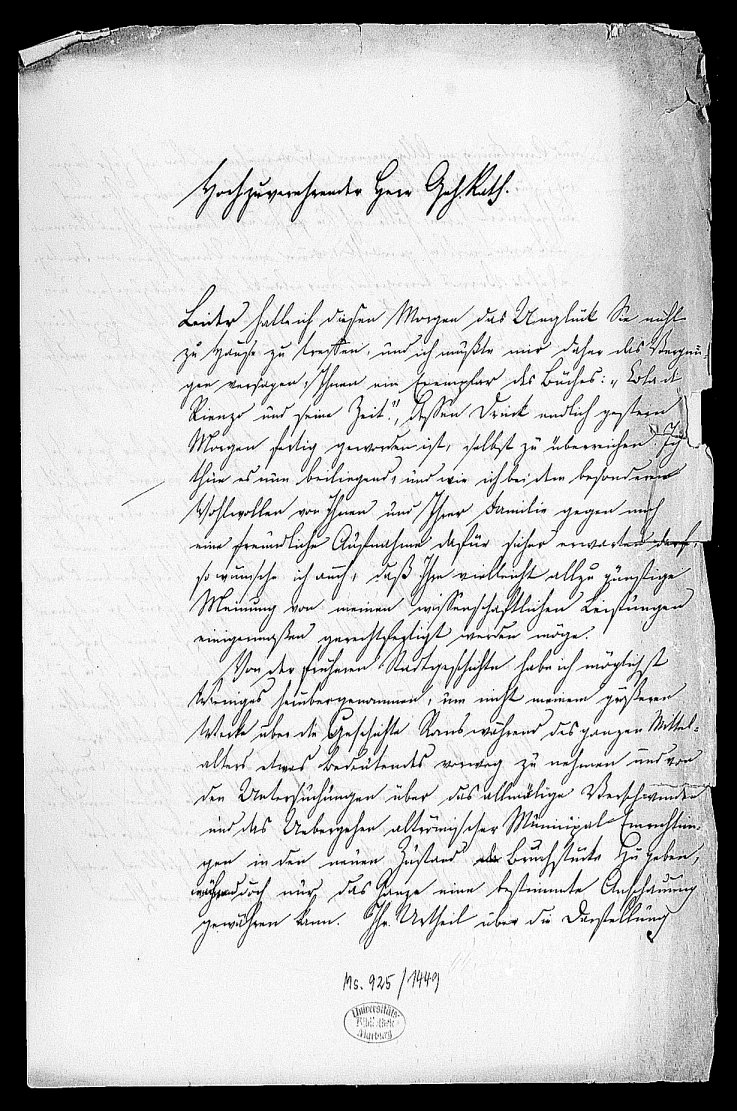 Hochzuverehrender Herr Geh. Rath.
Leider hatte ich diesen Morgen das Unglück Sie nicht
zu Hause zu treffen, und ich mußte mir daher das Vergnü-
gen versagen, Ihnen ein Exemplar des Buches: „Cola di
Rienzo und seine Zeit", dessen Druck endlich gestern
Morgen fertig geworden ist, selbst zu überreichen. Ich
thue es nun beiliegend, und wie ich bei dem besonderen
Wohlwollen von Ihnen und Ihrer Familie gegen mich
eine freundliche Aufnahme dafür sicher erwarten darf,
so wünsche ich auch, daß Ihre vielleicht allzu günstige
Meinung von meinen wissenschaftlichen Leistungen
einigermaßen gerechtfertigt werden möge.
Von der früheren Stadtgeschichte habe ich möglichst
Weniges herübergenommen, um nicht meinem größeren
Werke über die Geschichte Roms während des ganzen Mittel-
alters etwas Bedeutendes vorweg zu nehmen und von
den Untersuchungen über das allmälige Verschwinden
und das Uebergehen altrömischer Municipal-Einrichtun-
gen in den neuen Zustand Bruchstücke zu geben,
während doch nur das Ganze eine bestimmte Anschauung
gewähren kann. Ihr Urtheil über die Darstellung
Ms. 925/1449
Universitäts-
Bibliothek
Marburg